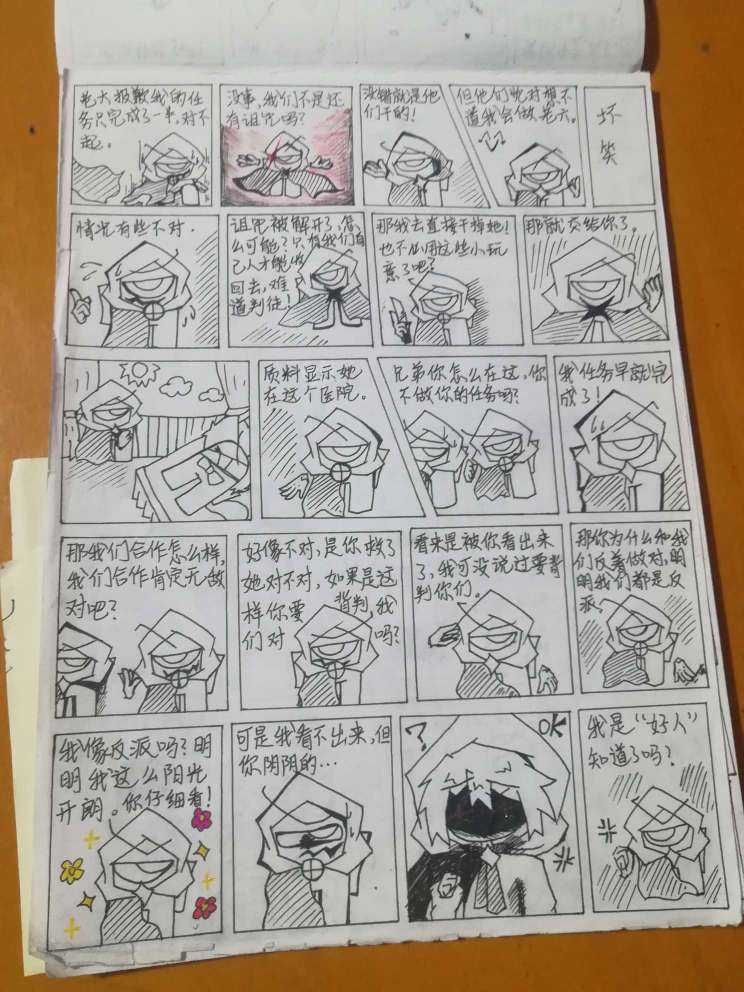 老大抱歉我的任
务只完成了一半,对不
起。
没事,我们不是还
有诅咒吗?
没错就是他
们干的!
但他们绝对想不
道我会做卷六。
坏
笑
情况有些不对.
诅咒被解开了,怎
么可能?只有我们自
己人才能收
回去,难
道判徒!
那我去直接干掉她!
也不必用这些小玩
意了吧?
那就交给你了。
质料显示她
在这个医院。
兄弟你怎么在这,你
不做你的任务吗?
我任务早就完
成了!
那我们合作怎么样,
我们合作肯定无敌
对吧?
好像不对,是你救了
她对不对,如果是这
样你要背判我
们对吗?
看来是被你看出来
了,我可没说过要背
判你们。
那你为什么和我
们反着做对,明
明我们都是反
派
我像反派吗?明
明我这么阳光
开朗。你仔细看!
可是我看不出来,但
你阴阴的...
?
OK
我是“好人”
知道了吗?